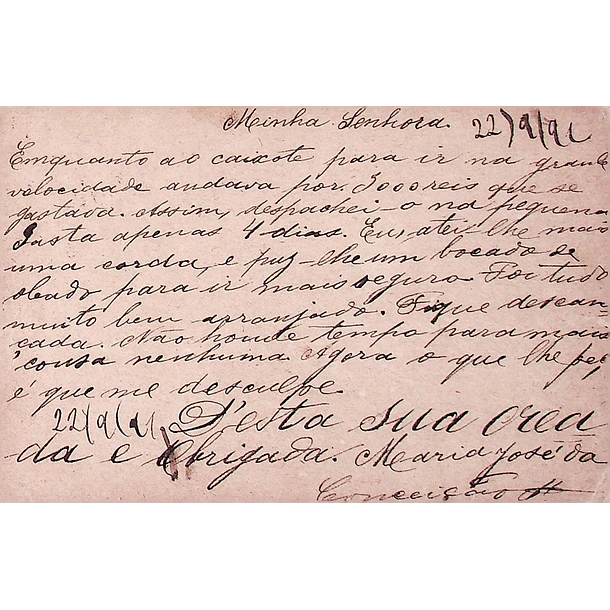 Minha Senhora. 22/9/91
Emquanto ao caixote para ir na grande
velocidade andava por. 3000 reis que se
gastava. Assim, despachei-o na pequena
Gasta apenas 4 dias. Eu, atei-lhe mais
uma corda, e puz-lhe um bocado de
obado para ir mais seguro. Foi tudo
muito bem arranjado. Fique descan-
cada. Não houve tempo para mais
cousa nenhuma. Agora o que lhe peço
é que me desculpe
22/9/91 D'esta sua crea
da e Obrigada. Maria José da
Conceição